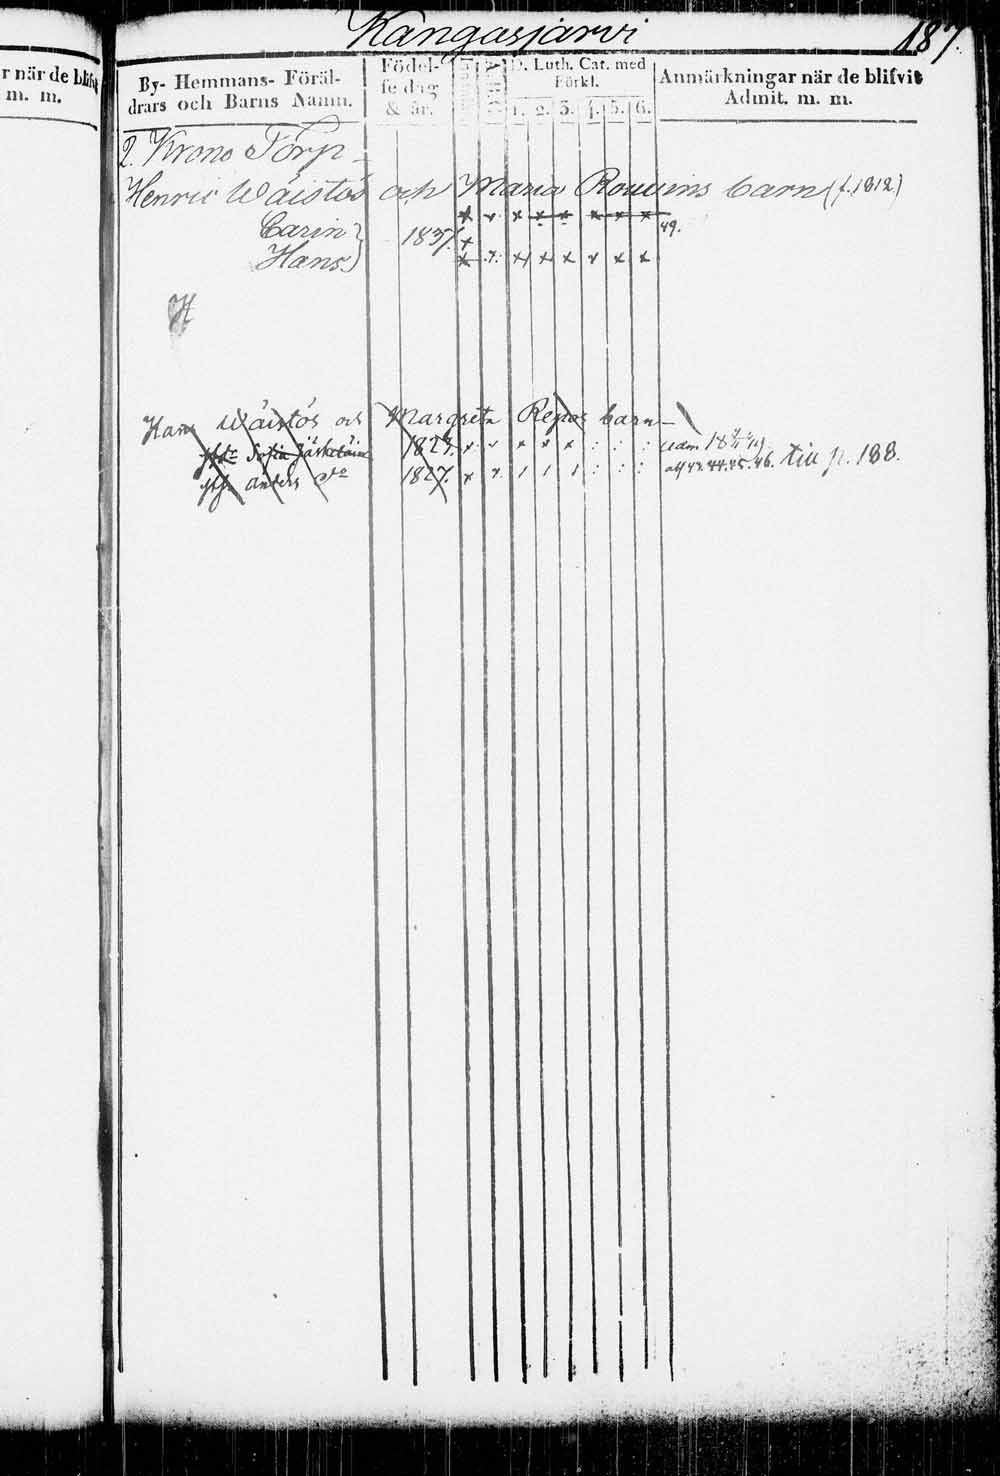 Kangasjärvi 187.
r när de blifvit
m. m.
By- Hemmans- Föräl-
drars och Barns Namn.
Födel-
se dag
& år.
D. Luth. Cat. med
Förkl.
1. 2. 3. 4. 5. 6.
Anmärkningar när de blifvit
Admit. m. m.
2. Krono Torp
Henric Wäistös och Maria Rouvins barn (f. 1812)
Carin 49.
1837.
Hans
H
Hans Wäistös och Margreta Repos barn
Sofia 1823.
Anders do 1827. 43. 44. 45. 46. till p. 188.